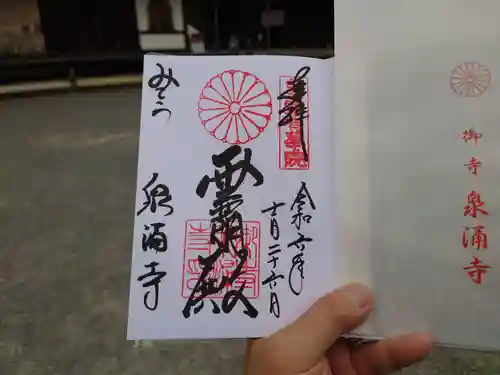 奉拝
令和六年
十月二十六日
霊明殿
みてら
泉涌寺
御寺 泉涌寺